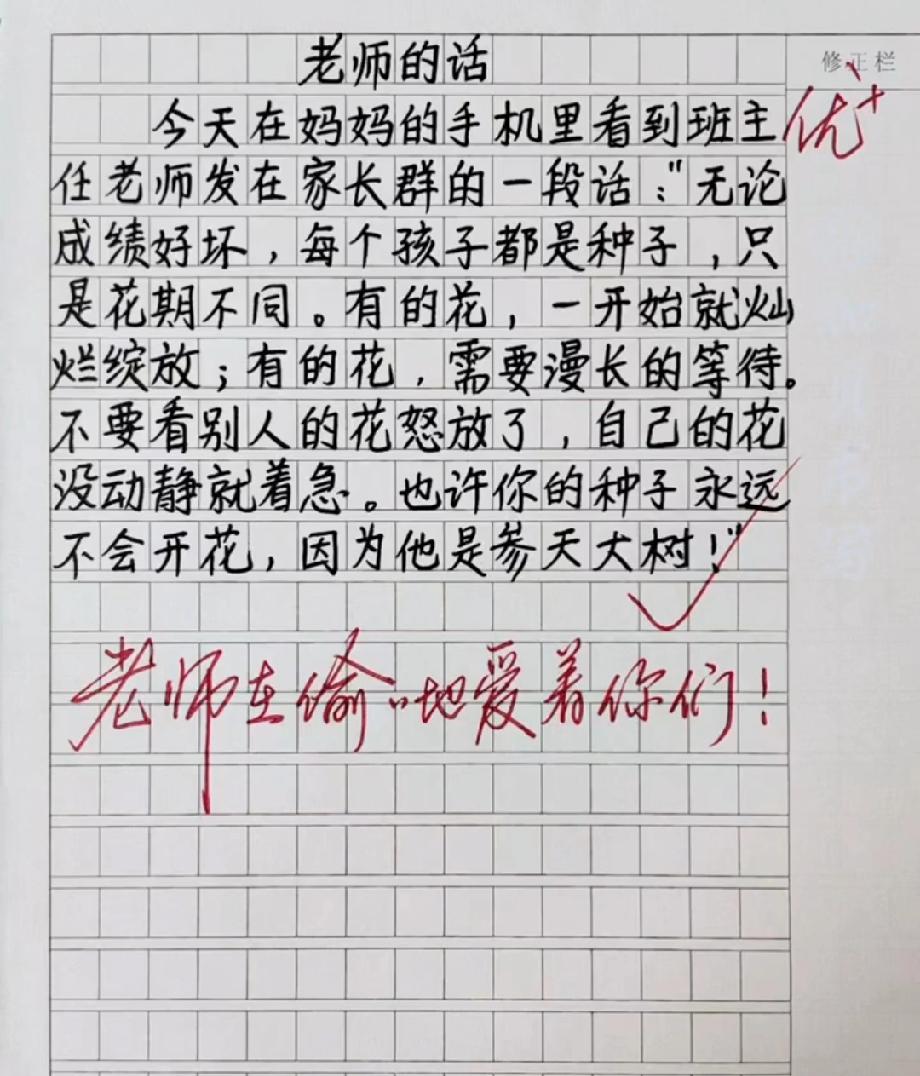 老师的话
修正栏
今天在妈妈的手机里看到班主
优+
任老师发在家长群的一段话："无论
成绩好坏，每个孩子都是种子，只
是花期不同。有的花，一开始就灿
烂绽放；有的花，需要漫长的等待。
不要看别人的花怒放了，自己的花
没动静就着急。也许你的种子永远
不会开花，因为他是参天大树！"
老师在偷〃地爱着你们！